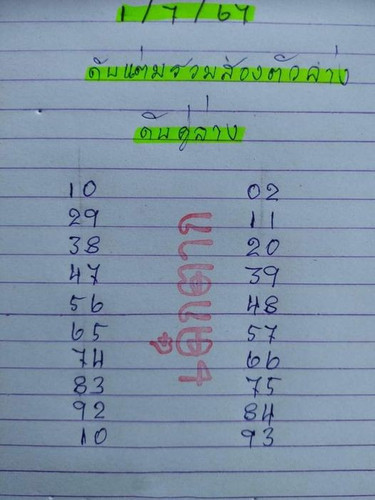 1/7/67
ดับแต้มรวมสองตัวล่าง
ดับคู่ล่าง
10 02
29 11
38 20
47 39
56 48
65 57
74 66
83 75
92 84
10 93